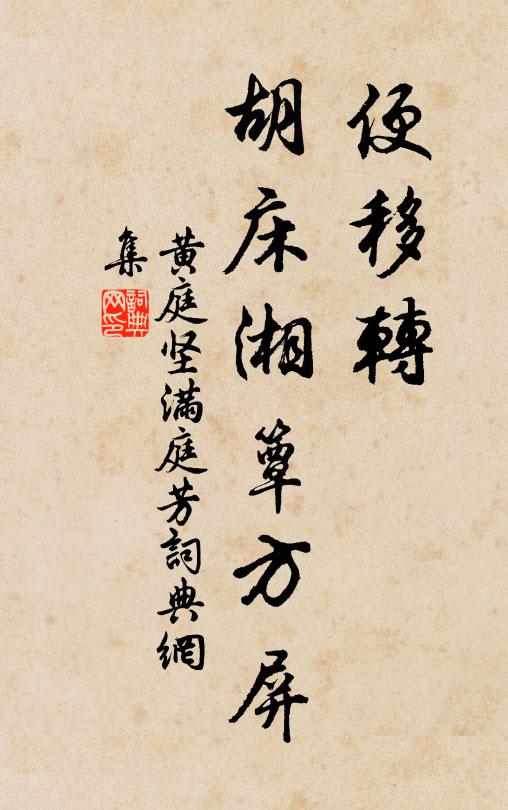 便移轉
胡床湘簟方屏
黄庭坚满庭芳詞典網
集
詞典
网印